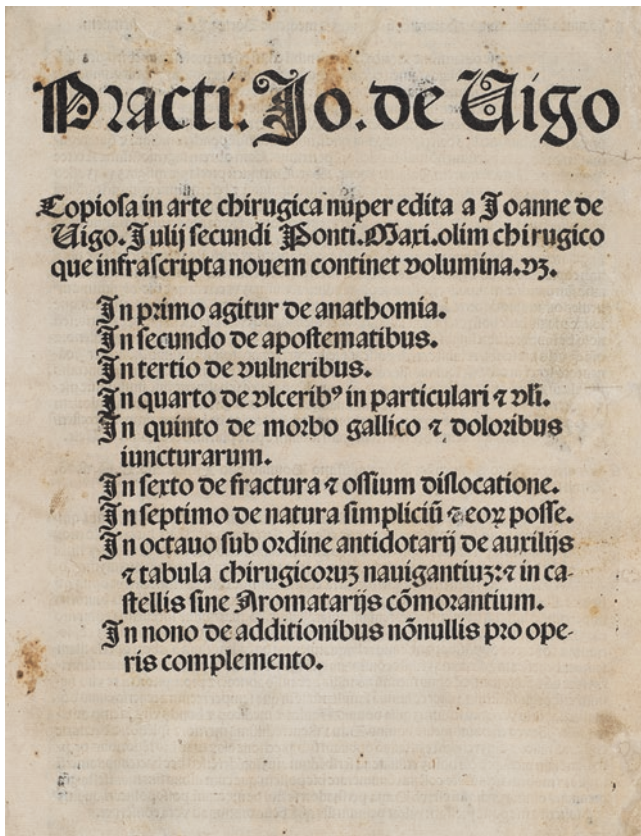 Practi. Jo. de Uigo
Copiosa in arte chirugica nuper edita a Joanne de
Uigo. Julij secundi Ponti. Maxi. olim chirugico
que infrascripta nouem continet volumina. vꝫ.
In primo agitur de anathomia.
In secundo de apostematibus.
In tertio de vulneribus.
In quarto de vlceribꝰ in particulari ⁊ vli.
In quinto de morbo gallico ⁊ doloribus
iuncturarum.
In sexto de fractura ⁊ ossium dislocatione.
In septimo de natura simpliciū ⁊ eoꝝ posse.
In octauo sub ordine antidotarij de auxilijs
⁊ tabula chirugicoruꝫ nauigantiuꝫ: ⁊ in ca-
stellis sine Aromatarijs cōmorantium.
In nono de additionibus nōnullis pro ope-
ris complemento.